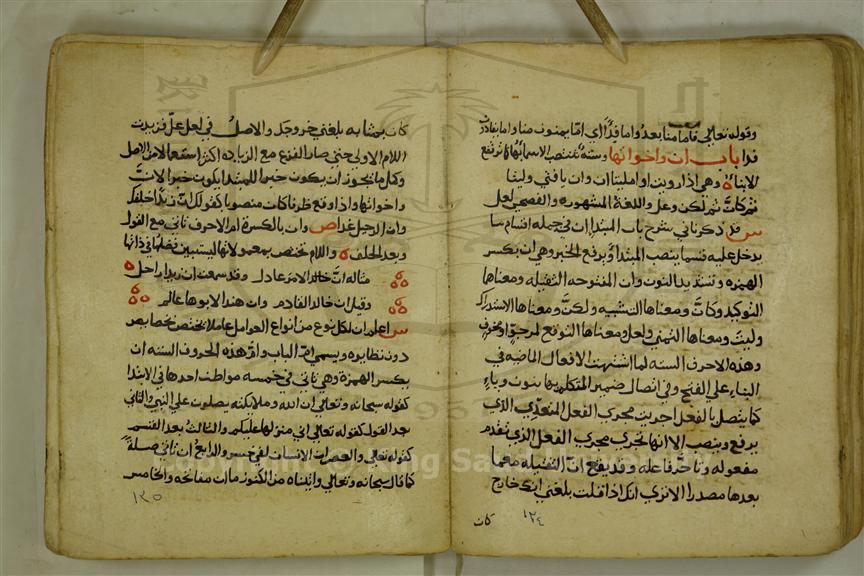 وقوله تعالي فاما منا بعد واما فداً اي اما يمنون منا واما يفادون
فدا باب ان واخواتها وستة تنتصب الاسماء بها كما ترتفع
الانباء وهي اذا رويت او امليتا ان وان يا فتي وليتا
ثم كان ثم لكن وعل واللغة المشهوره والفصحي لعل
س قد ذكرنا في شرح باب المبتدا ان في جمله اقسام ما
يدخل عليه قسما ينصب المبتدا ويرفع الخبر وهي ان بكسر
الهمزه وتشديد النون وان المفتوحه الثقيله ومعناها
التوكيد وكان ومعناها التشبيه ولكن ومعناها الاستدراك
وليت ومعناها التمني ولعل ومعناها التوقع لمرجو او مخوف
وهذه الاحرف السته لما اشبهت الافعال الماضيه في
البناء علي الفتح وفي اتصال ضمير المتكلم بها بنون وياء
كما يتصل بالفعل اجريت مجري الفعل المتعدي الذي
يرفع وينصب الا انها تجري مجري الفعل الذي تقدم
مفعوله وتاخر فاعله وقد يقع ان الثقيله مع ما
بعدها مصدرا الا تري انك اذا قلت بلغني انك خارج
كان
١٢٤
كان بمثابه بلغني خروجك والاصل في لعل عل فزيدت
اللام الاولي حتي صار الفرع مع الزياده اكثر استعمالا من الاصل
وكل ما يجوز ان يكون خبرا للمبتدا يكون خبرا لان
واخواتها واذا وقع ظرفا كان منصوبا كقولك ان زيدا خلفك
وان الرحيل غدا ص وان بالكسرة ام الاحرف تاتي مع القول
وبعد الحلف واللام تختص بمعمولاتها ليستبين فضلها في ذاتها
مثاله ان خالد الامير عادل وقد سمعت ان زيدا راحل
وقيل ان خالد القادم وان هندا لابوها عالم
س اعلم ان لكل نوع من انواع العوامل عاملا يختص بخصايص
دون نظايره ويسمي ام الباب وام هذه الحروف السته ان
بكسر الهمزة وهي تاتي في خمسه مواطن احدها في الابتدا
كقوله سبحانه وتعالي ان الله وملائكته يصلون علي النبي والثاني
بعد القول كقوله تعالي اني منزلها عليكم والثالث بعد القسم
كقوله تعالي والعصر ان الانسان لفي خسر والرابع ان تاتي صلة
كما قال سبحانه وتعالي واتيناه من الكنوز ما ان مفاتحه والخامس
١٢٥
Copyright © King Saud University